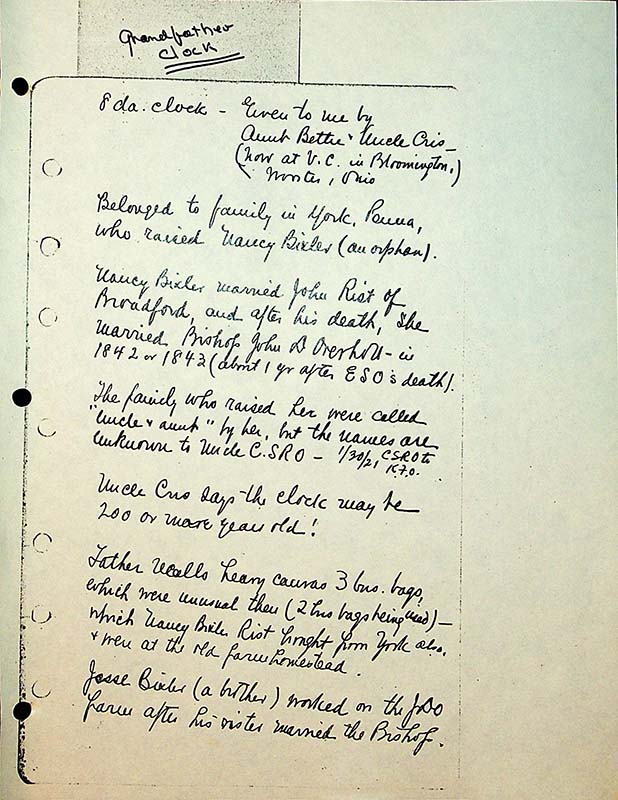 Grandfather
Clock
8 da. clock - Given to me by
Aunt Bettie & Uncle Cris -
(now at V.C. in Bloomington,)
Wooster, Ohio
Belonged to family in York, Penna,
who raised Nancy Bixler (an orphan).
Nancy Bixler married John Rist of
Broadford, and after his death, she
married Bishop John D Overholt - in
1842 or 1843 (about 1 yr after ESO's death).
The family who raised her were called
"uncle & aunt" by her, but the names are
unknown to Uncle C.SRO - 1/30/21 CSRO to
K.F.O.
Uncle Cris says the clock may be
200 or more years old!
Father recalls heavy canvas 3 bus. bags,
which were unusual then (2 bus bags being used) -
which Nancy Bixler Rist brought from York also,
& were at the old farm homestead.
Jesse Bixler (a brother) worked on the JDO
farm after his sister married the Bishop.